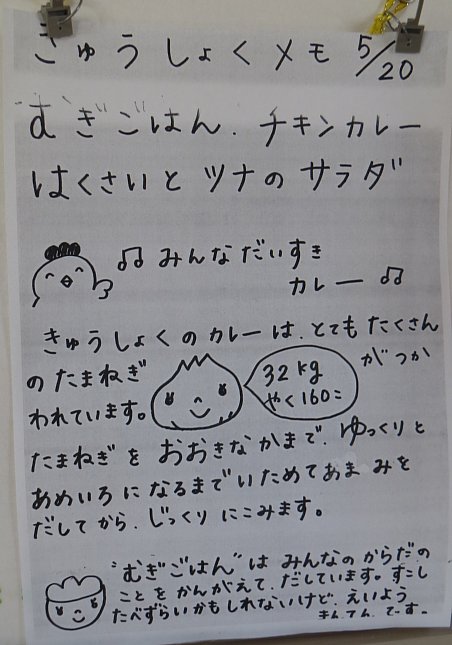 きゅうしょくメモ 5/20
むぎごはん.チキンカレー
はくさいと ツナの サラダ
♫ みんなだいすき
カレー ♫
きゅうしょくのカレーは、とても たくさん
のたまねぎ
がつか
われています。
32kg
やく160こ
たまねぎを おおきなかまで、ゆっくりと
あめいろになるまでいためてあまみを
だしてから、じっくりにこみます。
"むぎごはん"は みんなの からだの
ことを かんがえて、だしています。すこし
たべずらいかもしれないけど、えいよう
まんてんでーす。